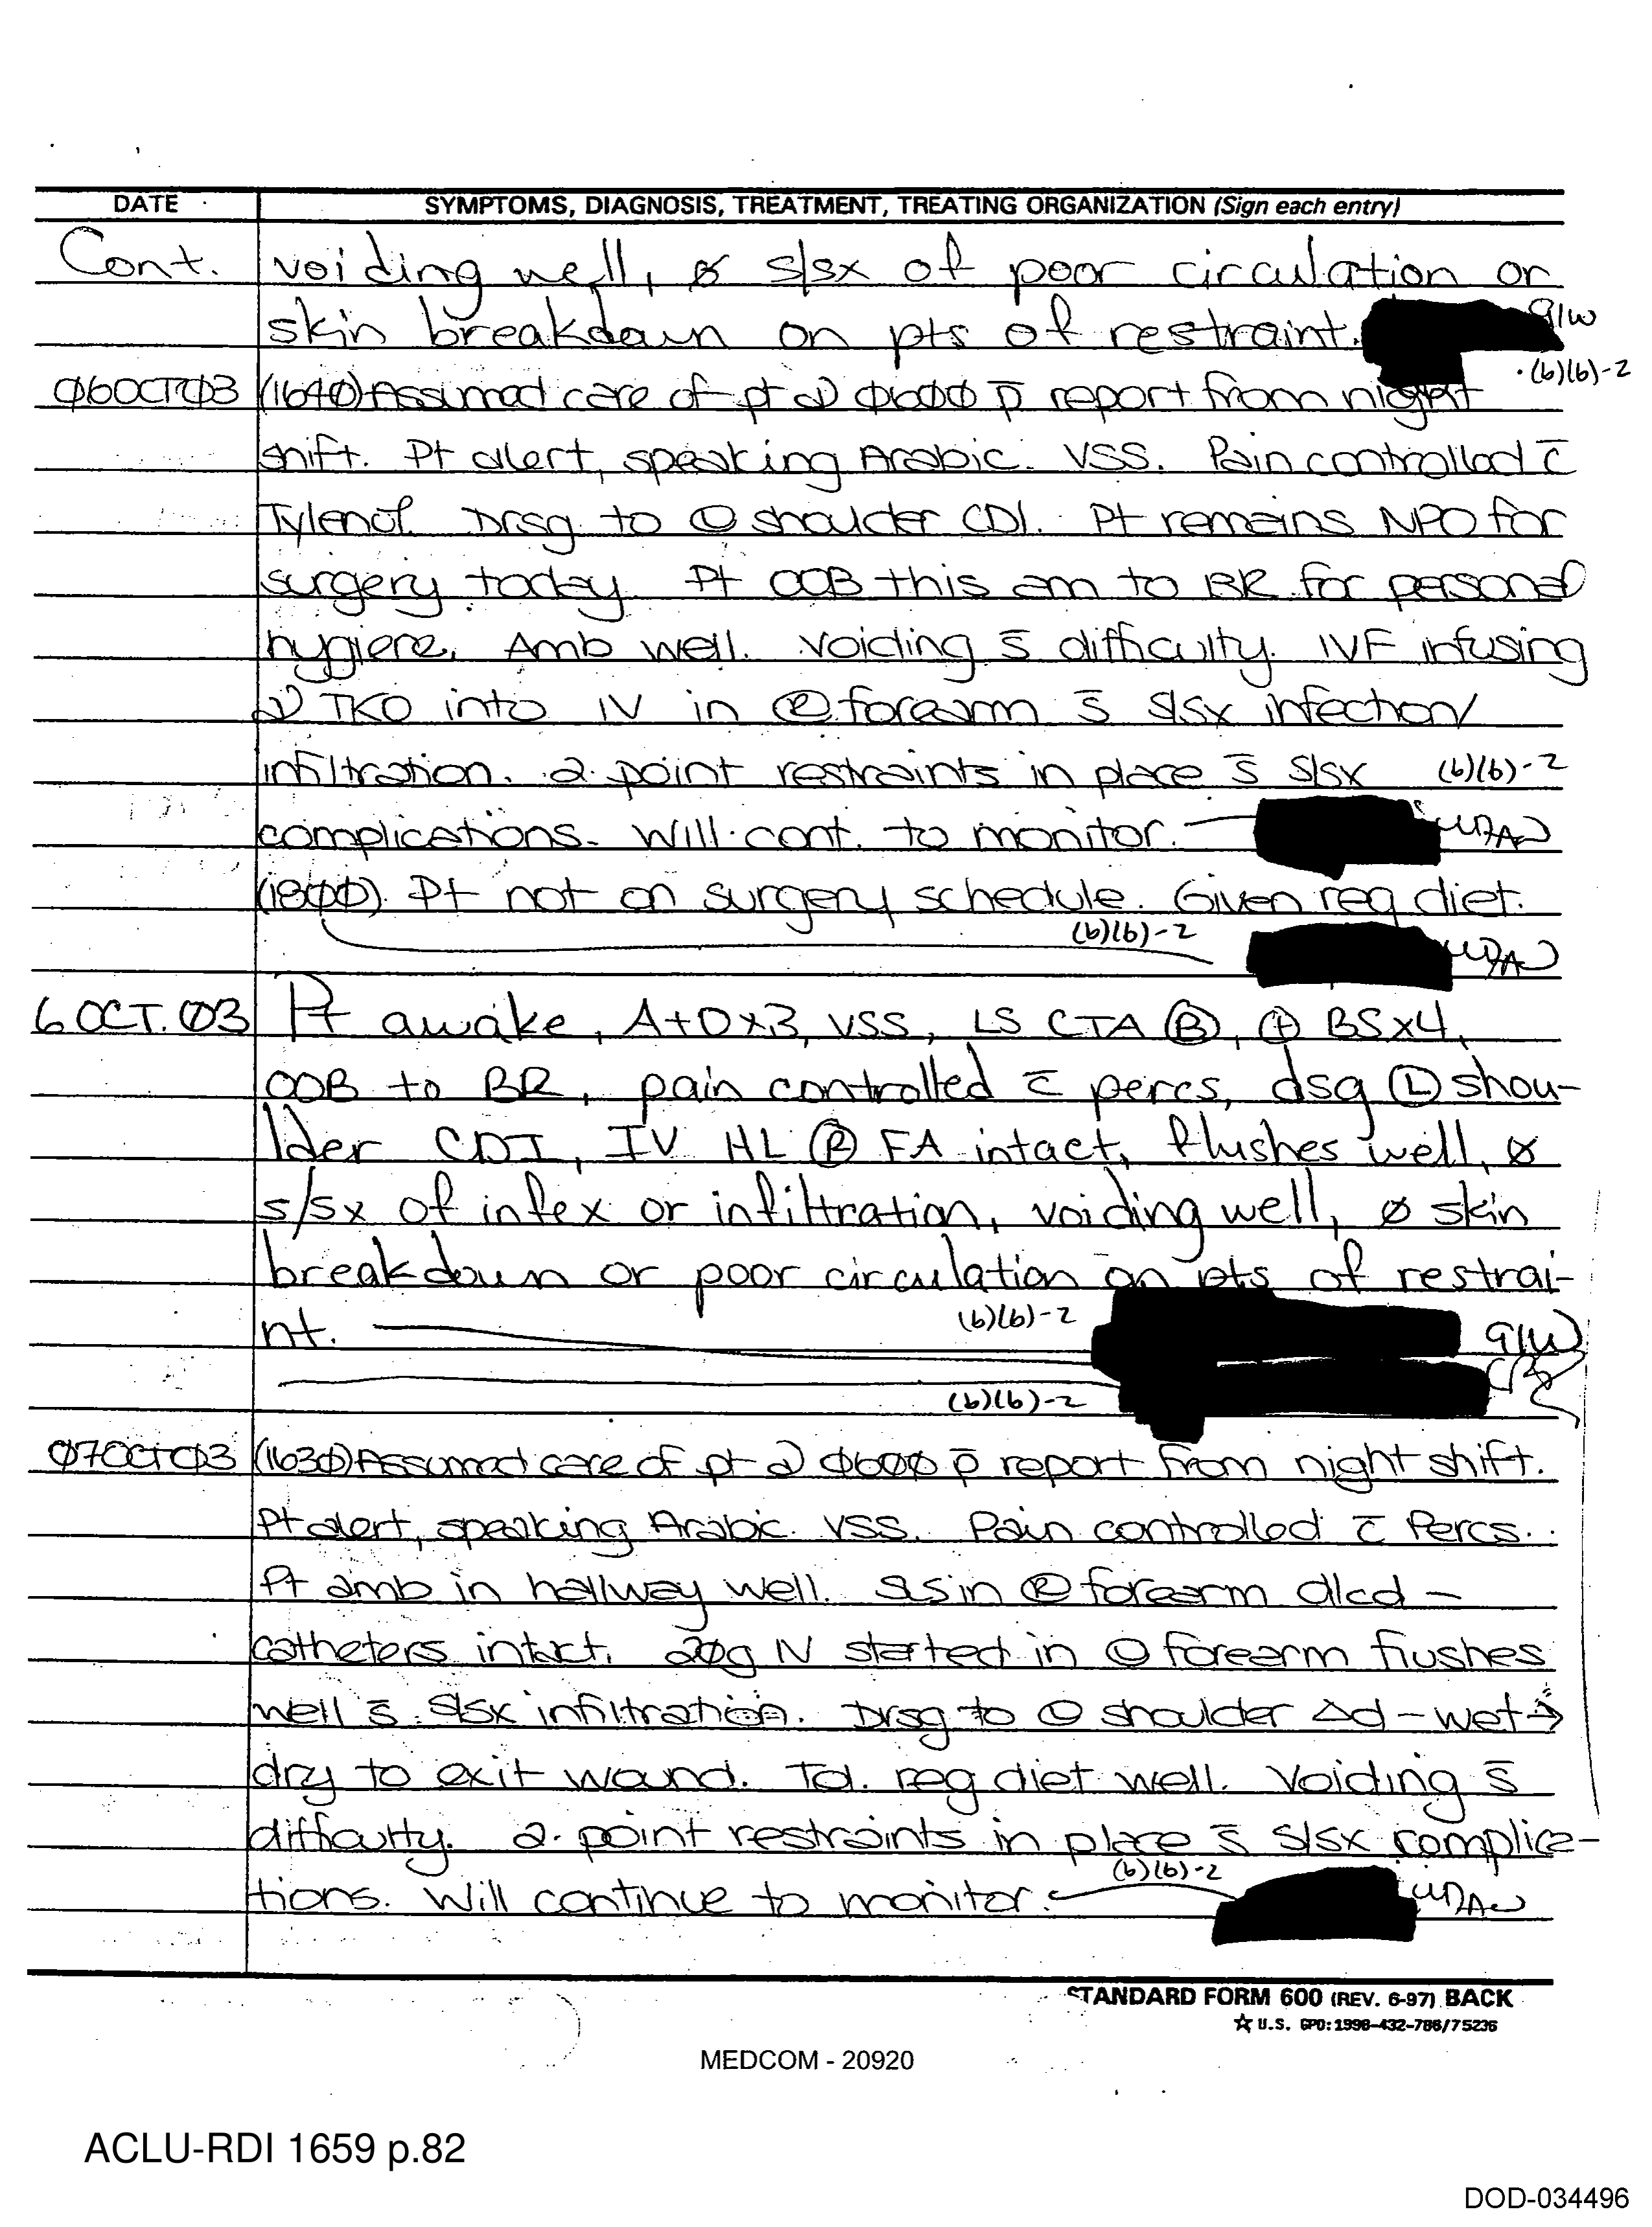 DATE
SYMPTOMS, DIAGNOSIS, TREATMENT, TREATING ORGANIZATION (Sign each entry)
Cont. voiding well, ø s/sx of poor circulation or
skin breakdown on pts of restraint. 91W
(b)(6)-2
06OCT03 (1640) Assumed care of pt @ 0600 p̄ report from night
shift. Pt alert, speaking Arabic. VSS. Pain controlled c̄
Tylenol. Drsg to Ⓛ shoulder CDI. Pt remains NPO for
surgery today. Pt OOB this am to BR for personal
hygiene. Amb well. Voiding s̄ difficulty. IVF infusing
@ TKO into IV in Ⓡ forearm s̄ s/sx infection/
infiltration. 2 point restraints in place s̄ s/sx (b)(6)-2
complications. Will cont. to monitor.
(1800) Pt not on surgery schedule. Given reg diet.
(b)(6)-2
6 OCT. 03 Pt awake, A+O×3, VSS, LS CTA Ⓑ, ⊕ BS×4,
OOB to BR, pain controlled c̄ percs, dsg Ⓛ shou-
lder CDI, IV HL Ⓡ FA intact, flushes well, ø
s/sx of infex or infiltration, voiding well, ø skin
breakdown or poor circulation on pts of restrai-
nt. (b)(6)-2 91W
(b)(6)-2
07OCT03 (1630) Assumed care of pt @ 0600 p̄ report from night shift.
Pt alert, speaking Arabic. VSS. Pain controlled c̄ Percs.
Pt amb in hallway well. in Ⓡ forearm d/cd -
catheters intact. 20g IV started in Ⓛ forearm flushes
well s̄ s/sx infiltration. Drsg to Ⓛ shoulder Δd - wet→
dry to exit wound. Tol. reg diet well. Voiding s̄
difficulty. 2 point restraints in place s̄ s/sx complica-
tions. Will continue to monitor. (b)(6)-2
STANDARD FORM 600 (REV. 6-97) BACK
☆ U.S. GPO: 1998-432-786/75236
MEDCOM - 20920
ACLU-RDI 1659 p.82
DOD-034496